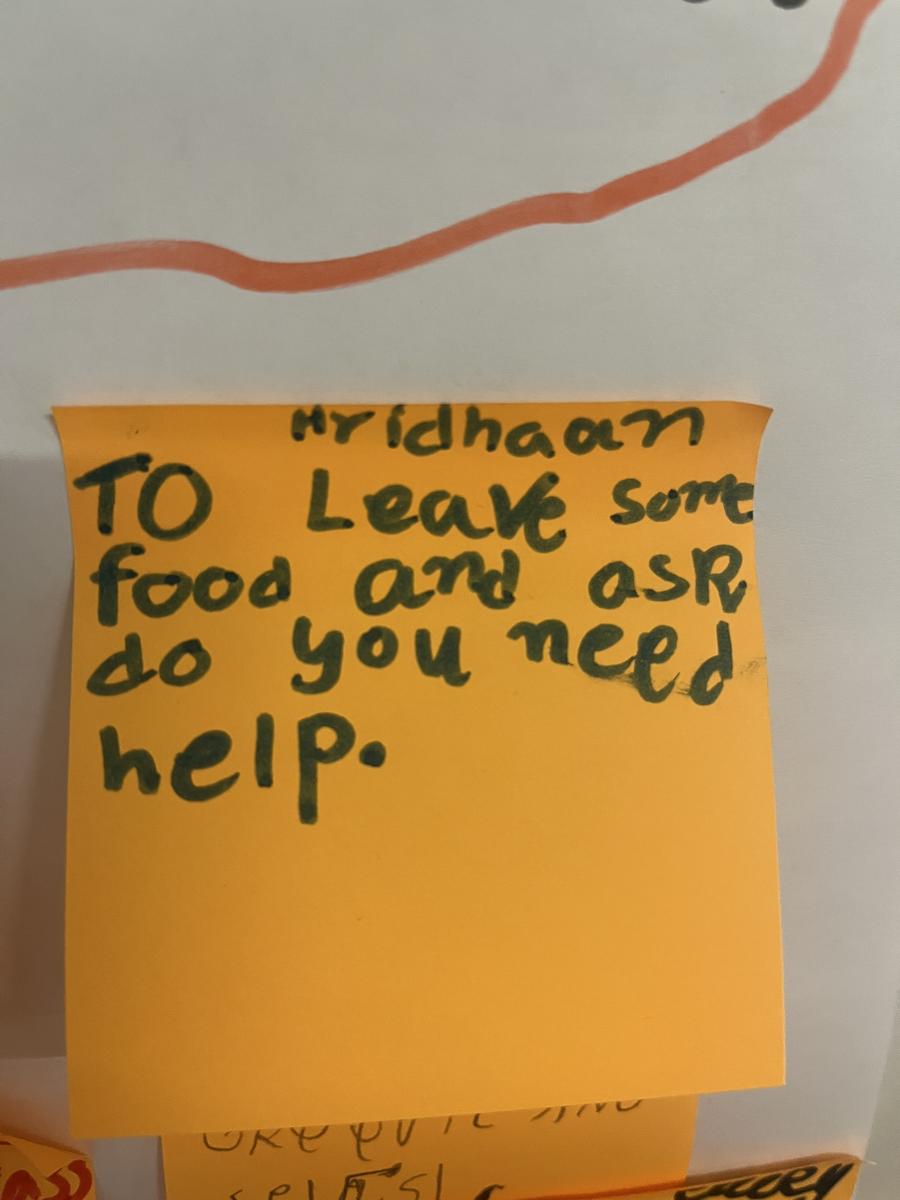 Hridhaan
TO Leave some
food and ask
do you need
help.